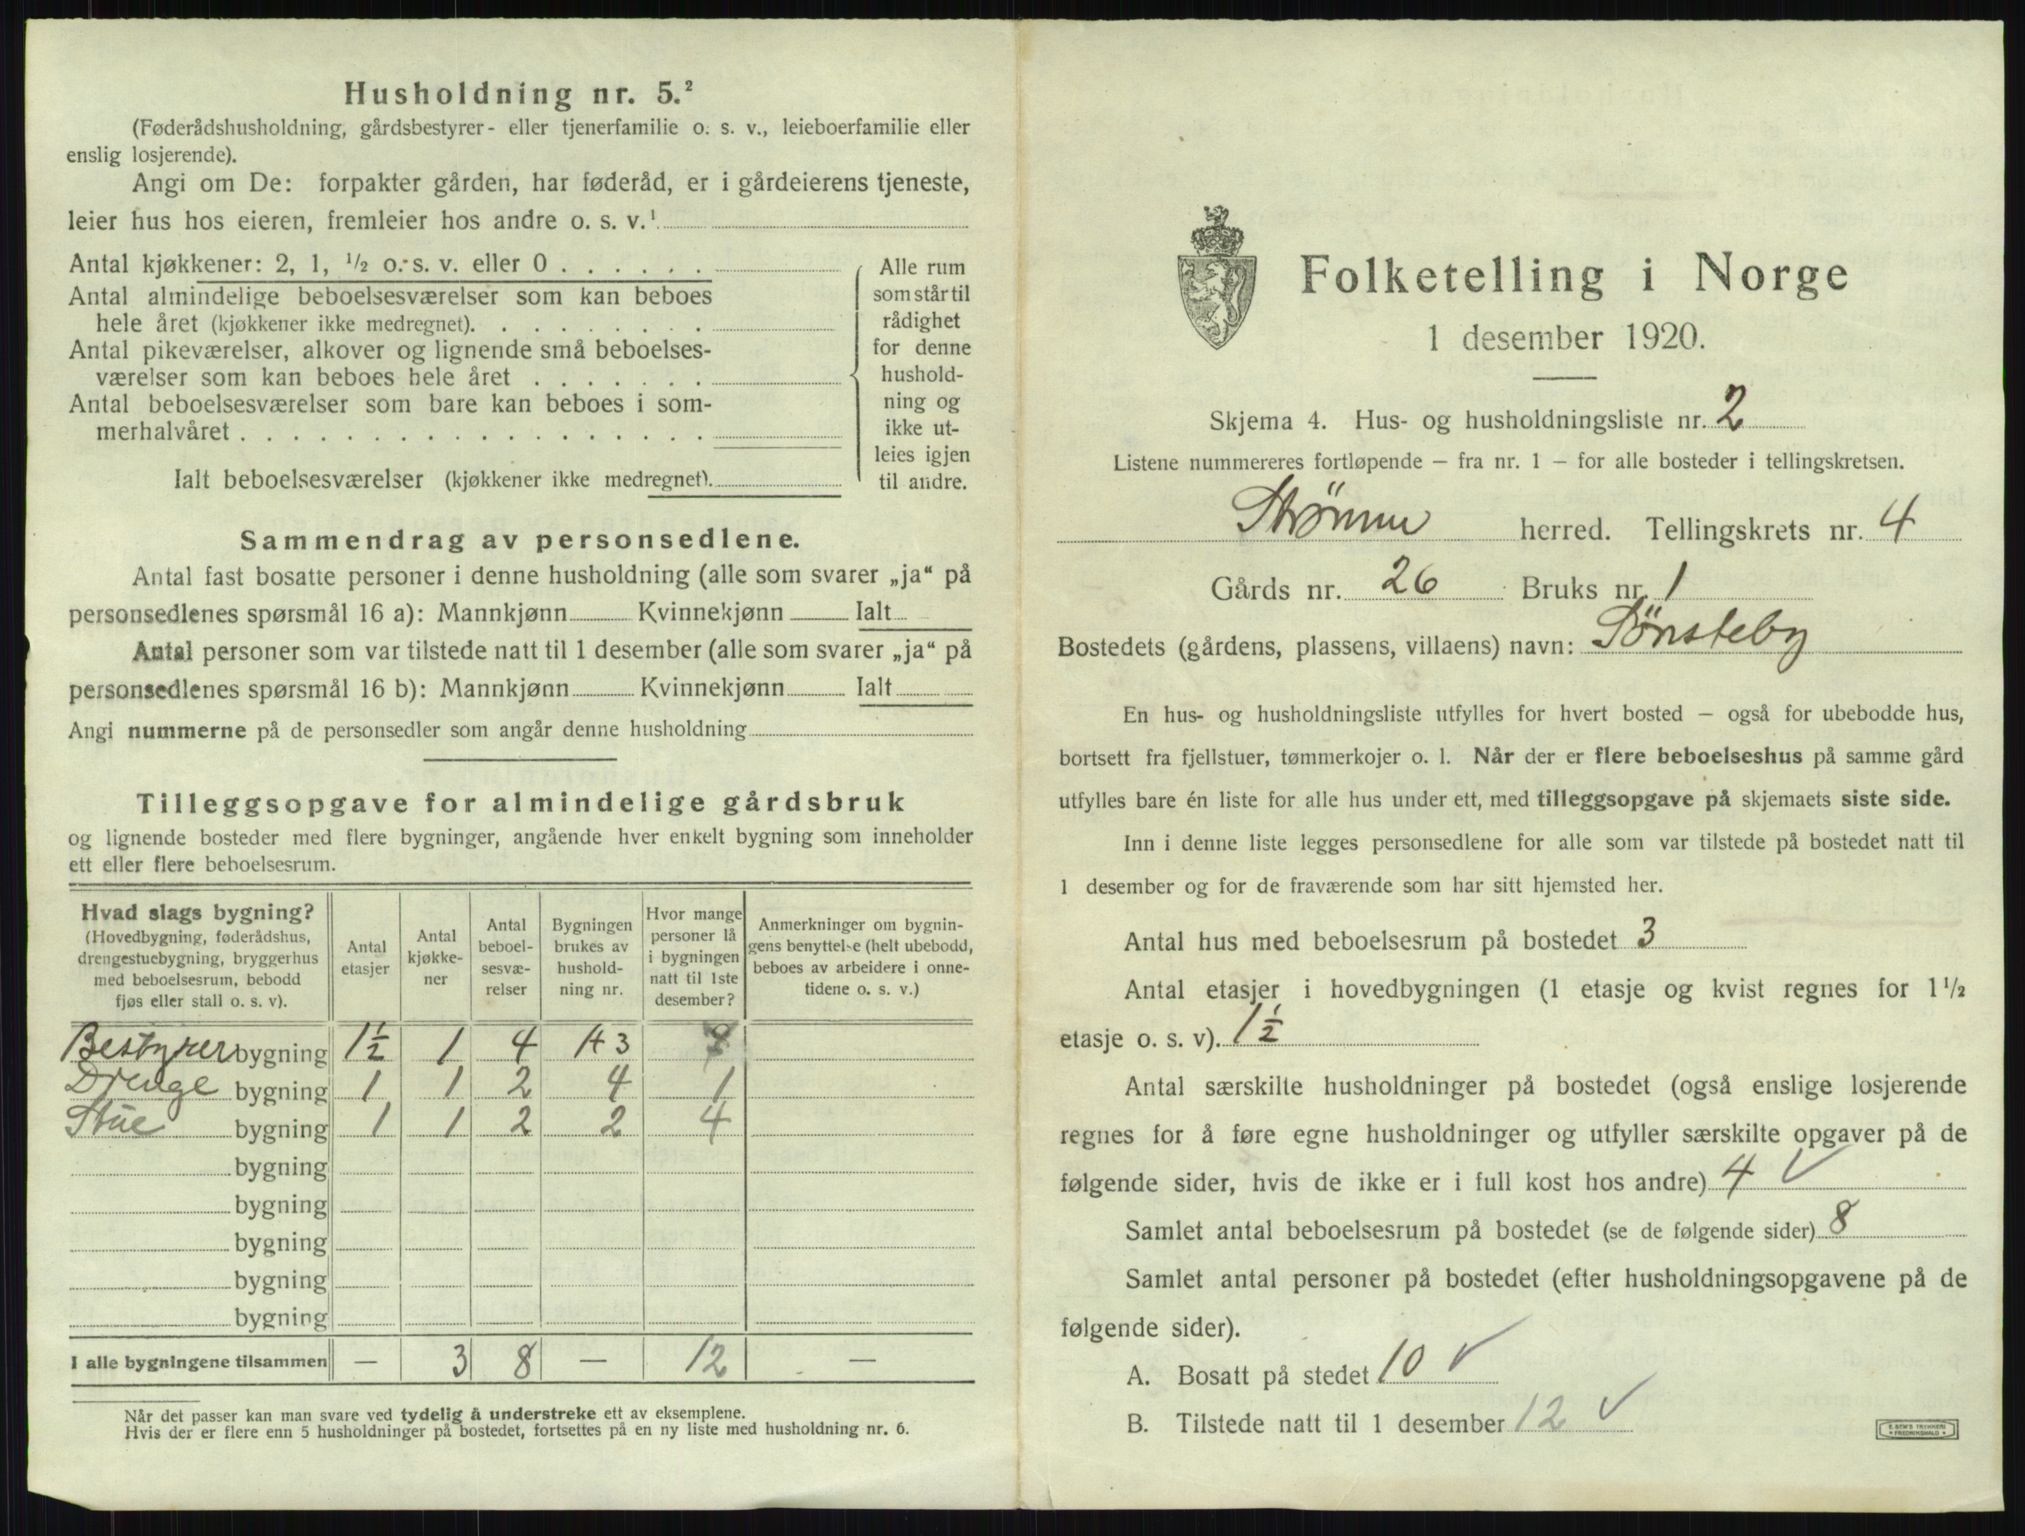 Husholdning nr. 5.²
(Føderådshusholdning, gårdsbestyrer- eller tjenerfamilie o. s. v., leieboerfamilie eller
enslig losjerende).
Angi om De: forpakter gården, har føderåd, er i gårdeierens tjeneste,
leier hus hos eieren, fremleier hos andre o. s. v.¹
Antal kjøkkener: 2, 1, ½ o. s. v. eller 0 . . . . . .
Antal almindelige beboelsesværelser som kan beboes
hele året (kjøkkener ikke medregnet). . . . . . . . .
Antal pikeværelser, alkover og lignende små beboelses-
værelser som kan beboes hele året . . . . . . .
Antal beboelsesværelser som bare kan beboes i som-
merhalvåret . . . . . . . . . . . . . . . . . .
Ialt beboelsesværelser (kjøkkener ikke medregnet).
Alle rum
som står til
rådighet
for denne
hushold-
ning og
ikke ut-
leies igjen
til andre.
Sammendrag av personsedlene.
Antal fast bosatte personer i denne husholdning (alle som svarer „ja“ på
personsedlenes spørsmål 16 a): Mannkjønn Kvinnekjønn Ialt
Antal personer som var tilstede natt til 1 desember (alle som svarer „ja“ på
personsedlenes spørsmål 16 b): Mannkjønn Kvinnekjønn Ialt
Angi nummerne på de personsedler som angår denne husholdning
Tilleggsopgave for almindelige gårdsbruk
og lignende bosteder med flere bygninger, angående hver enkelt bygning som inneholder
ett eller flere beboelsesrum.
Hvad slags bygning?
(Hovedbygning, føderådshus,
drengestuebygning, bryggerhus
med beboelsesrum, bebodd
fjøs eller stall o. s. v).
Antal
etasjer
Antal
kjøkke-
ner
Antal
beboel-
sesvæ-
relser
Bygningen
brukes av
hushold-
ning nr.
Hvor mange
personer lå
i bygningen
natt til 1ste
desember?
Anmerkninger om bygnin-
gens benyttelse (helt ubebodd,
beboes av arbeidere i onne-
tidene o. s. v.)
Bestyrer bygning 1½ 1 4 3
Drenge bygning 1 1 2 4 1
Stue bygning 1 1 2 2 4
bygning
bygning
bygning
bygning
bygning
I alle bygningene tilsammen — 3 8 — 12 —
Når det passer kan man svare ved tydelig å understreke ett av eksemplene.
Hvis der er flere enn 5 husholdninger på bostedet, fortsettes på en ny liste med husholdning nr. 6.
Folketelling i Norge
1 desember 1920.
Skjema 4. Hus- og husholdningsliste nr. 2
Listene nummereres fortløpende – fra nr. 1 – for alle bosteder i tellingskretsen.
Strømm herred. Tellingskrets nr. 4
Gårds nr. 26 Bruks nr. 1
Bostedets (gårdens, plassens, villaens) navn: Sønsteby
En hus- og husholdningsliste utfylles for hvert bosted – også for ubebodde hus,
bortsett fra fjellstuer, tømmerkojer o. l. Når der er flere beboelseshus på samme gård
utfylles bare én liste for alle hus under ett, med tilleggsopgave på skjemaets siste side.
Inn i denne liste legges personsedlene for alle som var tilstede på bostedet natt til
1 desember og for de fraværende som har sitt hjemsted her.
Antal hus med beboelsesrum på bostedet 3
Antal etasjer i hovedbygningen (1 etasje og kvist regnes for 1½
etasje o. s. v). 1½
Antal særskilte husholdninger på bostedet (også enslige losjerende
regnes for å føre egne husholdninger og utfyller særskilte opgaver på de
følgende sider, hvis de ikke er i full kost hos andre) 4 ✓
Samlet antal beboelsesrum på bostedet (se de følgende sider) 8
Samlet antal personer på bostedet (efter husholdningsopgavene på de
følgende sider).
A. Bosatt på stedet 10 ✓
B. Tilstede natt til 1 desember 12 ✓
E. SEM'S TRYKKERI
FREDRIKSHALD